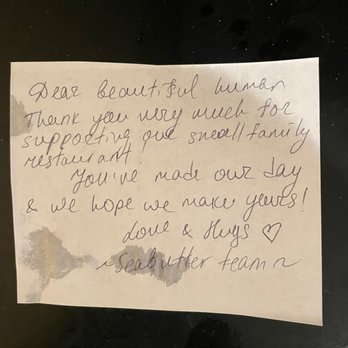 Dear beautiful human
Thank you very much for
supporting our small family
restaurant!
You've made our day
& we hope we make yours!
Love & Hugs ♡
~Seabutter team~